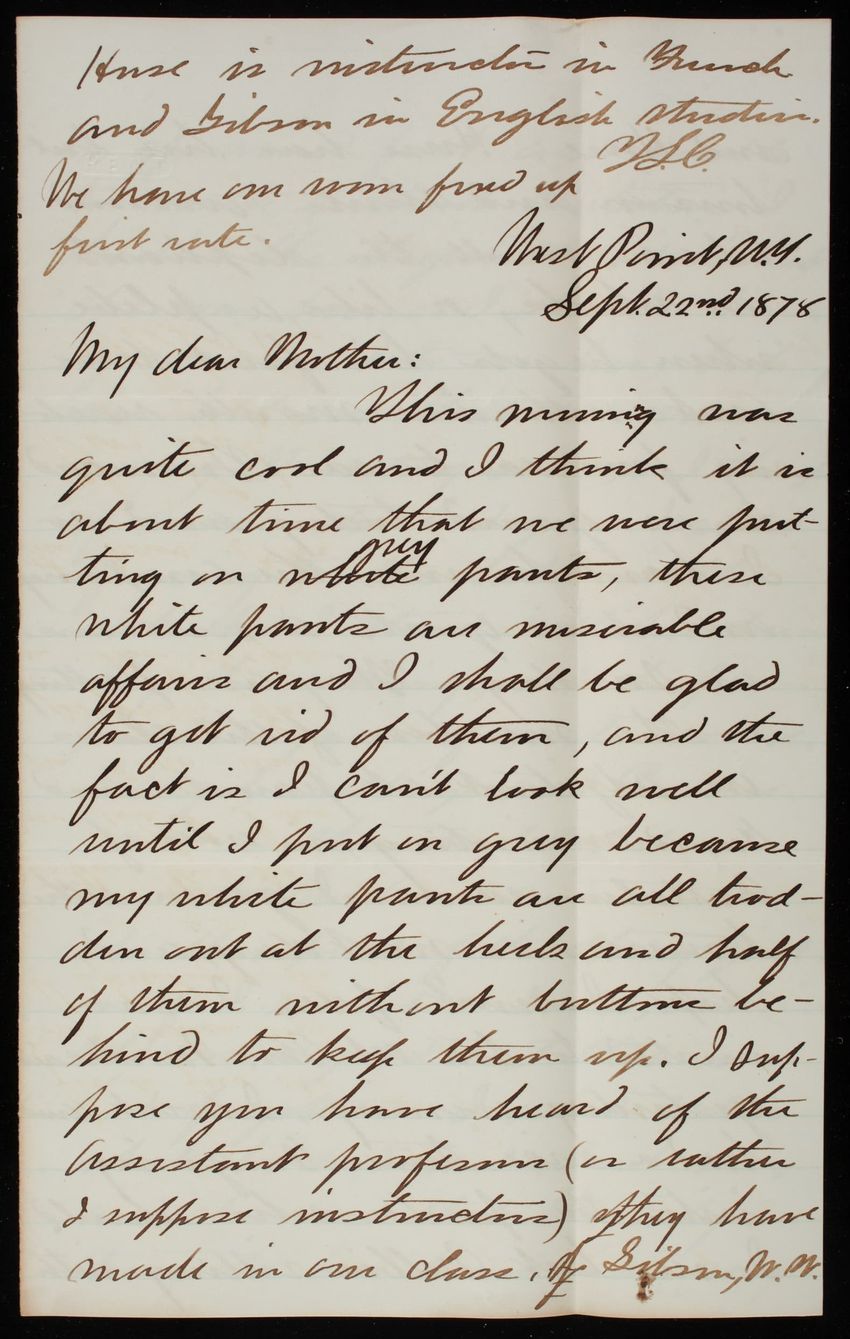 Huse is instructor in French
and Gibson in English studies.
T.L.C.
We have our room fixed up
first rate.
West Point, N.Y.
Sept. 22nd. 1878
My dear Mother:
This morning was
quite cool and I think it is
about time that we were put-
grey
ting on white pants, these
white pants are miserable
affairs and I shall be glad
to get rid of them, and the
fact is I can't look well
until I put on grey because
my white pants are all trod-
den out at the heels and half
of them without buttons be-
hind to keep them up. I sup-
pose you have heard of the
assistant professors (or rather
I suppose instructors) they have
made in our class. Gibson, W. W.